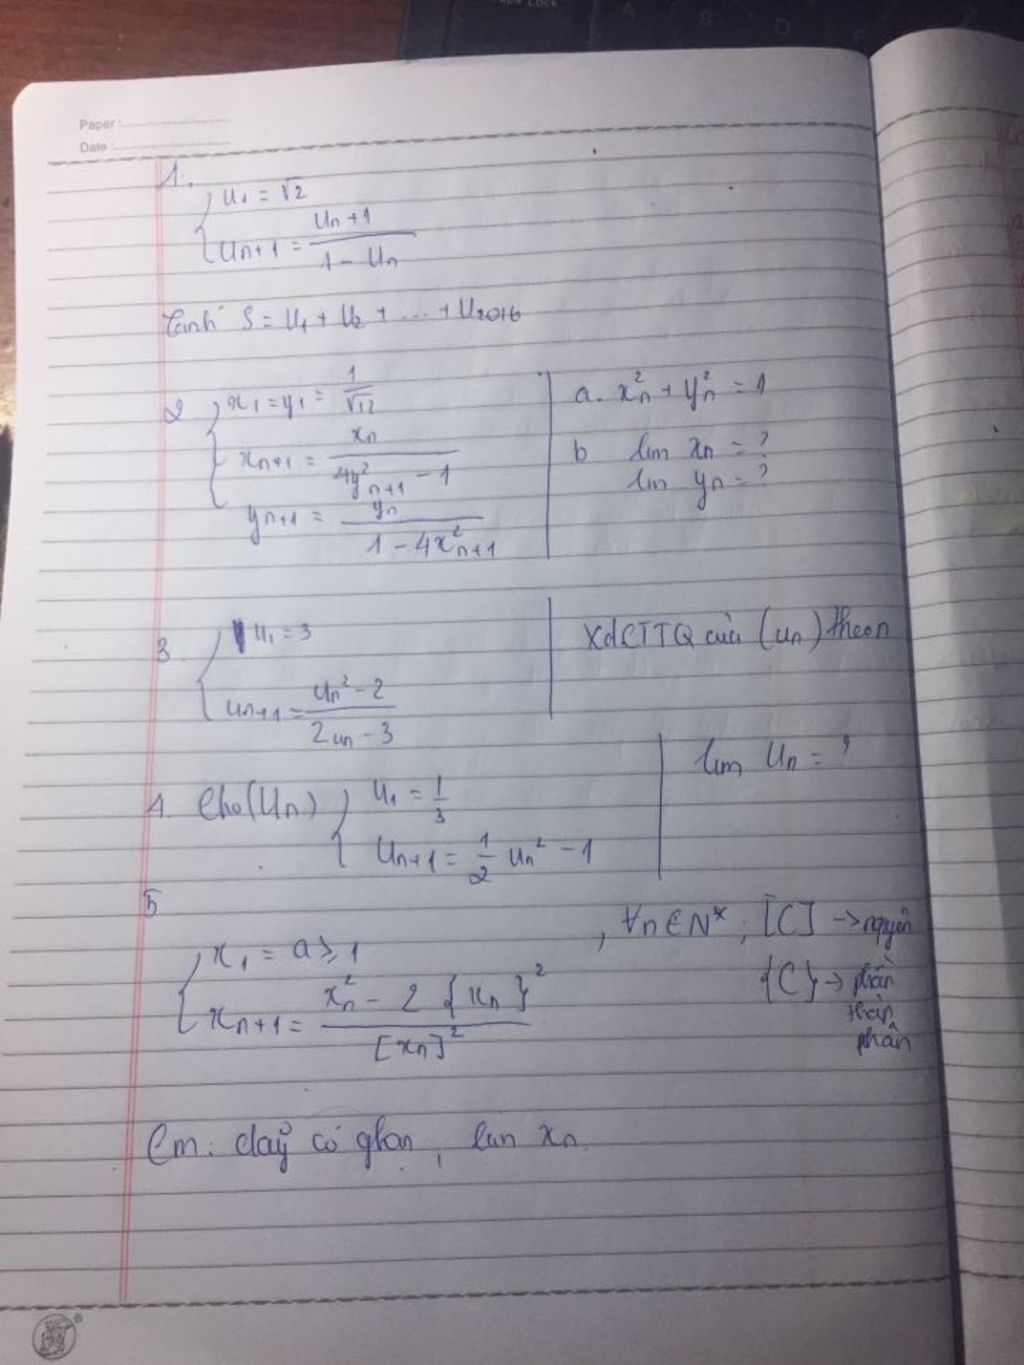 Caps Lock
A S D
Paper :
Date :
1.
u₁ = √2
uₙ₊₁ = (uₙ + 1) / (1 - uₙ)
S = u₁ + u₂ + ... + u₂₀₁₆
2
x₁ = y₁ = 1/√12
xₙ₊₁ = xₙ / (4y²ₙ₊₁ - 1)
yₙ₊₁ = yₙ / (1 - 4x²ₙ₊₁)
a. x²ₙ + y²ₙ = 1
b lim xₙ = ?
lim yₙ = ?
3
u₁ = 3
uₙ₊₁ = (uₙ² - 2) / (2uₙ - 3)
XđCTTQ của (uₙ) theo n
4. Cho (uₙ)
u₁ = 1/3
uₙ₊₁ = 1/2 uₙ² - 1
lim uₙ = ?
5
x₁ = a ≥ 1
xₙ₊₁ = (x²ₙ - 2{xₙ}²) / [xₙ]²
, ∀n∈N* ; [C] → nguyên
{C} → phần
thập
phân
Cm: dãy có ghạn, lim xₙ.